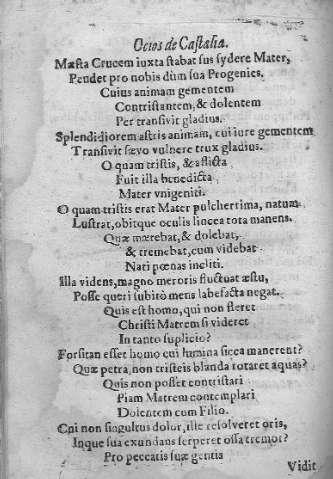 Octos de Castalia.
Mæsta Crucem iuxta stabat sus sydere Mater,
Pendet pro nobis dùm sua Progenies.
Cuius animam gementem
Contristantem, & dolentem
Per transivit gladius.
Splendidiorem astris animam, cui iure gementem
Transivit sævo vulnere trux gladius.
O quam tristis, & aflicta
Fuit illa benedicta
Mater vnigeniti.
O quam tristis erat Mater pulcherrima, natum
Lustrat, obitque oculis lincea tota manens.
Quæ mærebat, & dolebat,
& tremebat, cum videbat
Nati pœnas incliti.
Illa videns, magno meroris fluctuat æstu,
Posse queri subitò mens labefacta negat.
Quis est homo, qui non fleret
Christi Matrem si videret
In tanto suplicio?
Forsitan esset homo cui lumina sicca manerent?
Quæ petra, non tristeis blanda rotaret aquas?
Quis non posset contristari
Piam Matrem contemplari
Dolentem cum Filio.
Cui non singultus dolor, ille resolveret oris,
Inque sua exundans serperet ossa tremor?
Pro peccatis suæ gentis
Vidit